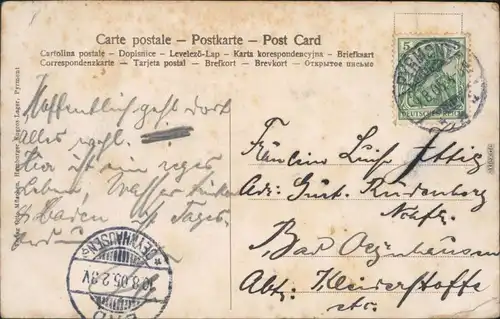 Carte postale – Postkarte – Post Card
Cartolina postale – Dopisnice – Levelező-Lap – Karta korespondencyjna – Briefkaart
Correspondenzkarte – Tarjeta postal – Brefkort – Brevkort – Открытое письмо
5
PYRMONT
DEUTSCHES REICH
Hoffentlich geht dort
alles wohl.
Hier ist ein reges
Leben, Wasser trinken
Baden
Fräulein Luise Ettig
Adr: Gust. Rudenberg
Nachfg.
Bad Oeynhausen
Abt: Kleiderstoffe
etc.
* OEYNHAUSEN *
10.8.05.2-3V
BAD